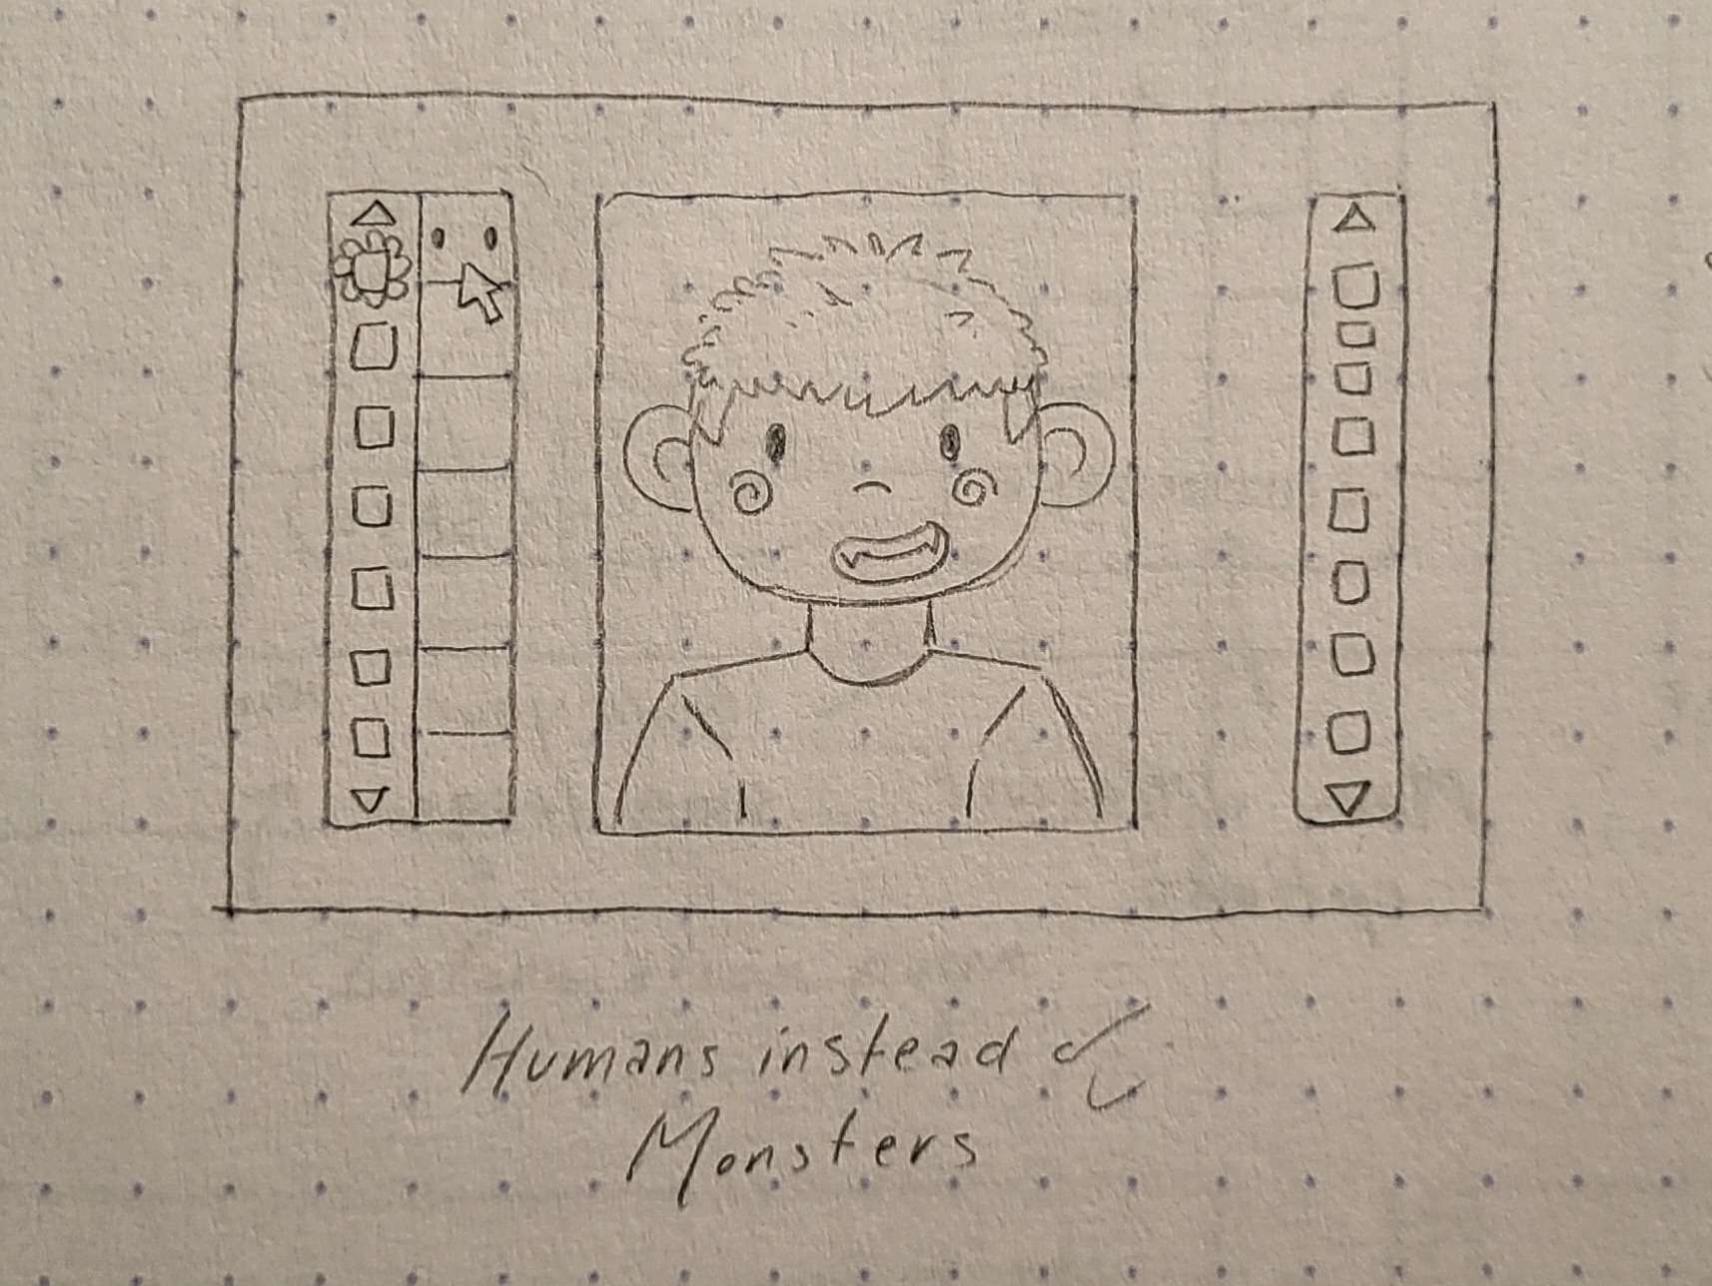 Humans instead of
Monsters